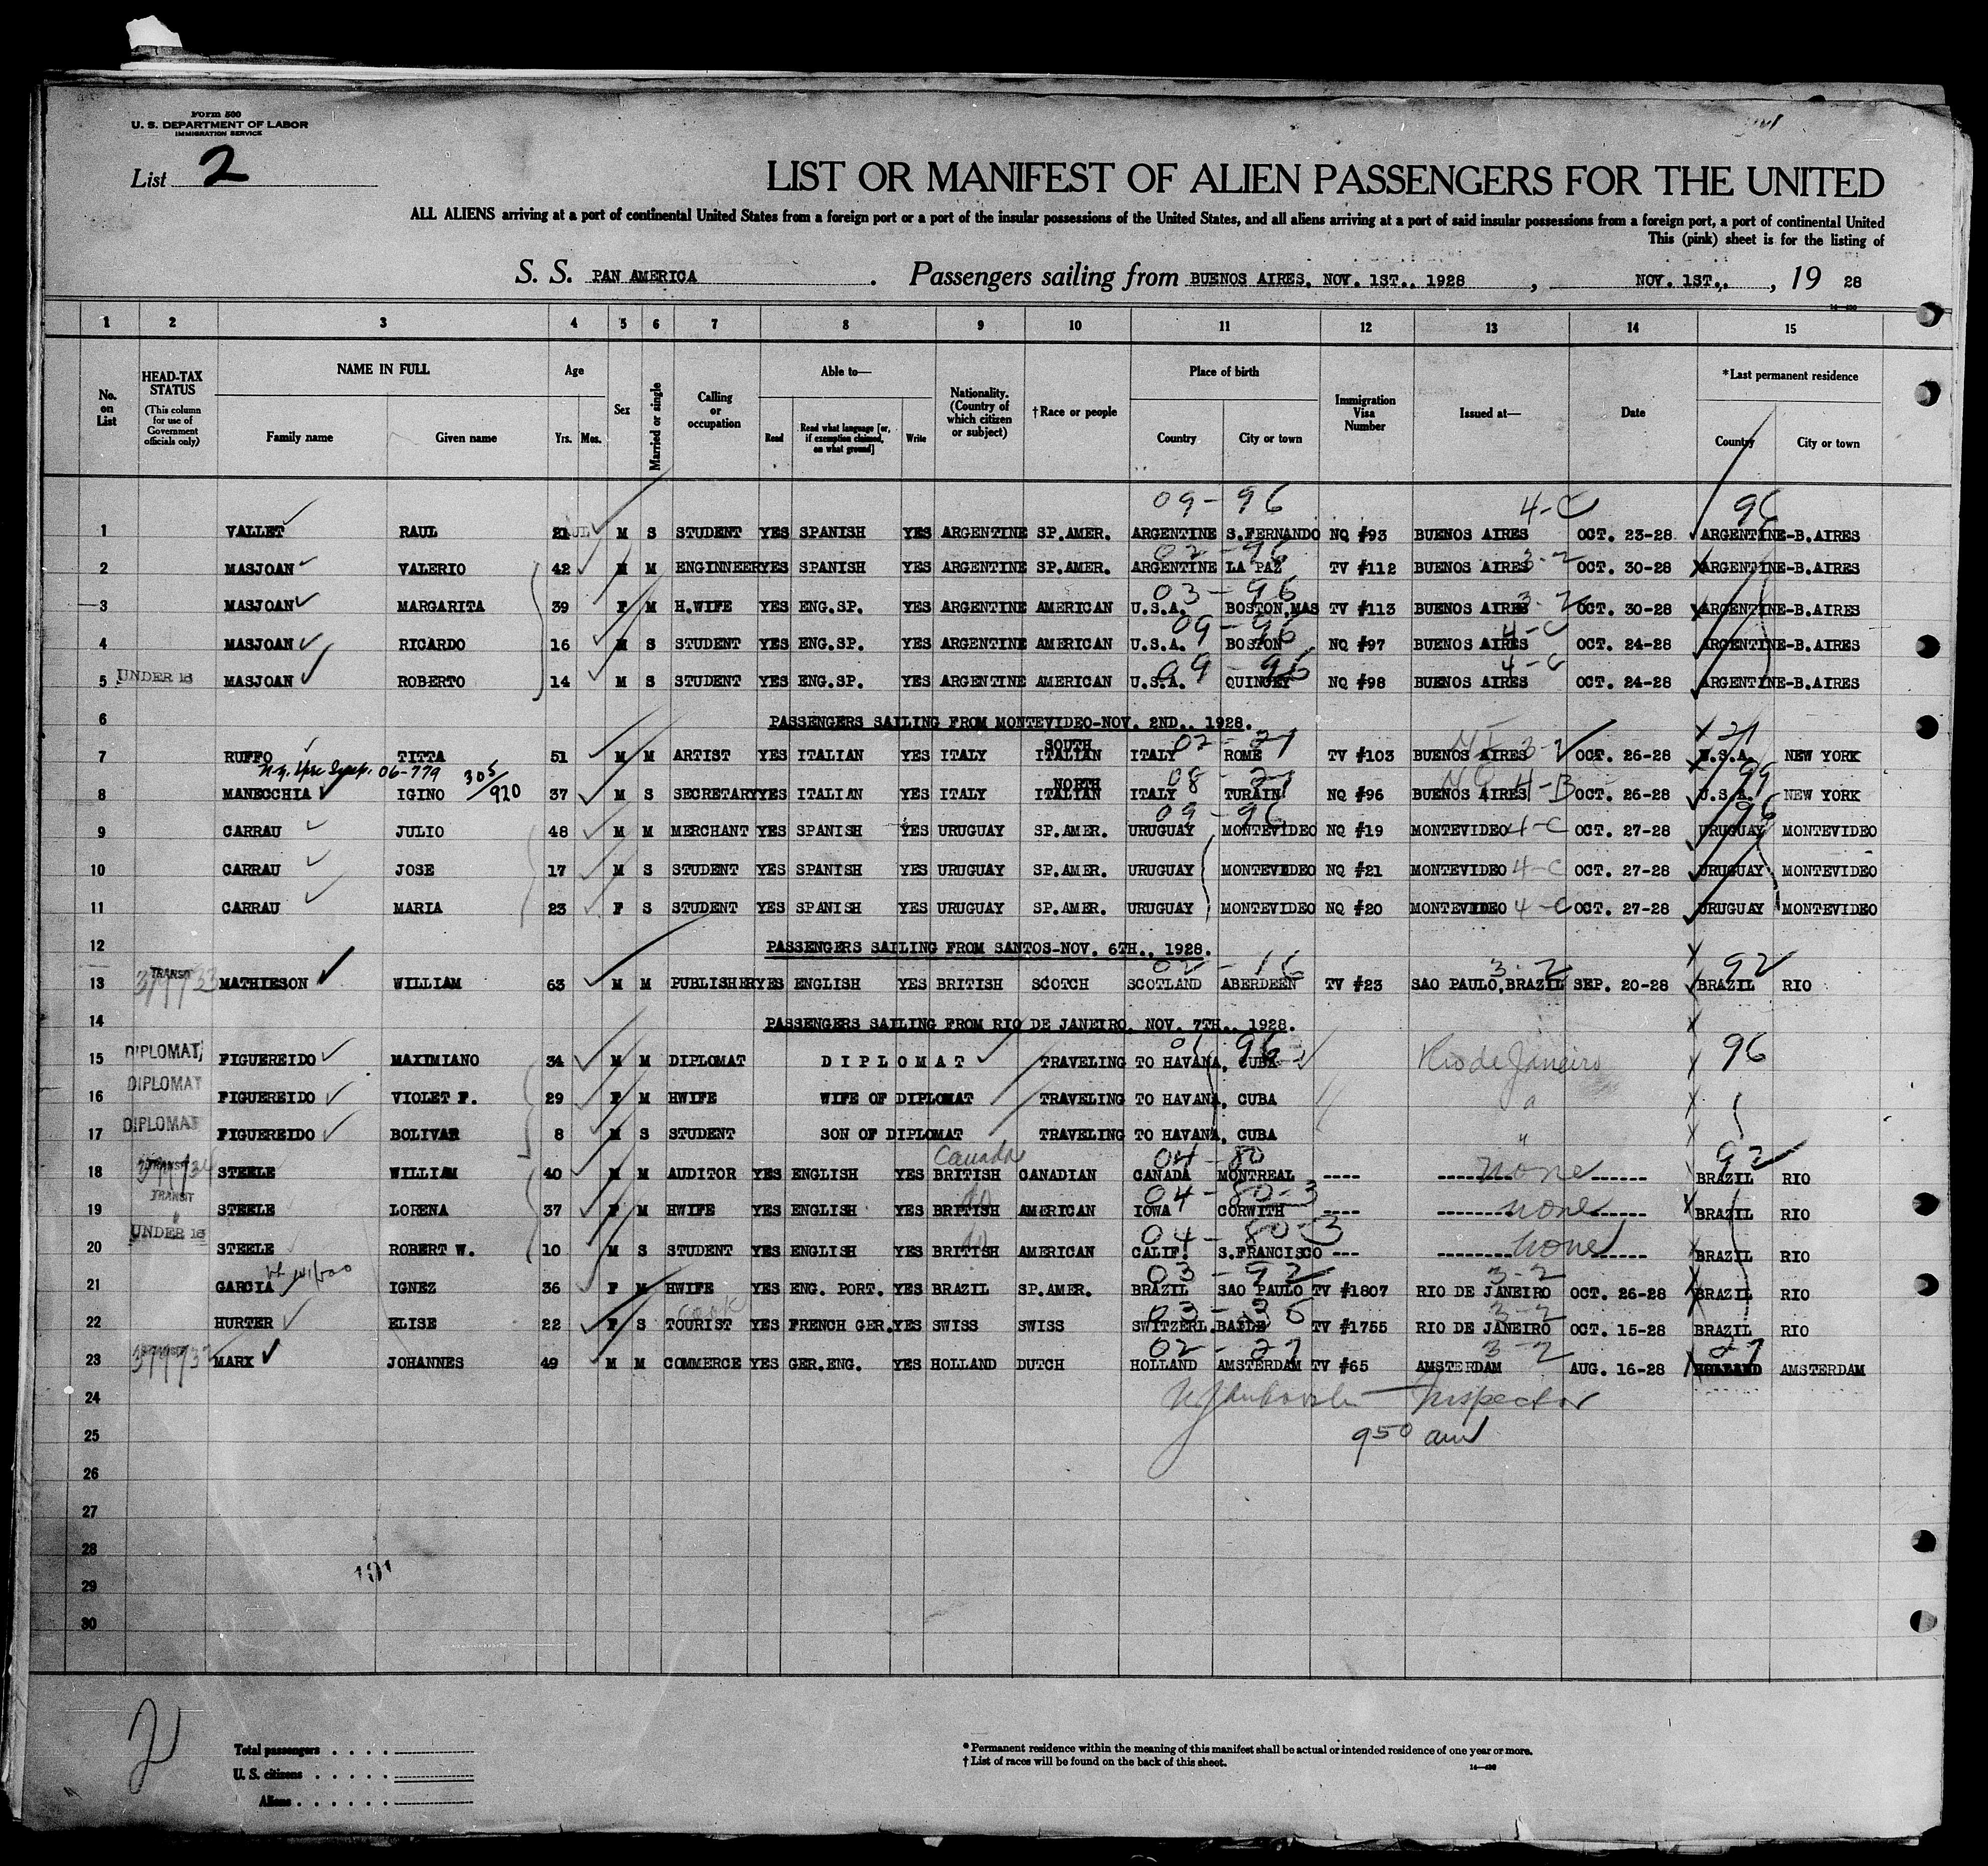 Form 500
U. S. DEPARTMENT OF LABOR
IMMIGRATION SERVICE
List 2
LIST OR MANIFEST OF ALIEN PASSENGERS FOR THE UNITED
ALL ALIENS arriving at a port of continental United States from a foreign port or a port of the insular possessions of the United States, and all aliens arriving at a port of said insular possessions from a foreign port, a port of continental United
This (pink) sheet is for the listing of
S. S. PAN AMERICA . Passengers sailing from BUENOS AIRES, NOV. 1ST., 1928 , NOV. 1ST., , 19 28
1 2 3 4 5 6 7 8 9 10 11 12 13 14 15
No. on List HEAD-TAX STATUS (This column for use of Government officials only) NAME IN FULL Family name Given name Age Yrs. Mos. Sex Married or single Calling or occupation Able to— Read Read what language [or, if exemption claimed, on what ground] Write Nationality. (Country of which citizen or subject) †Race or people Place of birth Country City or town Immigration Visa Number Issued at— Date *Last permanent residence Country City or town
09-96 4-C 96
1 VALLET RAUL 21 M S STUDENT YES SPANISH YES ARGENTINE SP.AMER. ARGENTINE S.FERNANDO NQ #93 BUENOS AIRES OCT. 23-28 ARGENTINE-B.AIRES
02-96 3-2
2 MASJOAN VALERIO 42 M M ENGINNEER YES SPANISH YES ARGENTINE SP.AMER. ARGENTINE LA PAZ TV #112 BUENOS AIRES OCT. 30-28 ARGENTINE-B.AIRES
03-96 3-2
3 MASJOAN MARGARITA 39 F M H.WIFE YES ENG.SP. YES ARGENTINE AMERICAN U.S.A. BOSTON,MAS TV #113 BUENOS AIRES OCT. 30-28 ARGENTINE-B.AIRES
09-96 4-C
4 MASJOAN RICARDO 16 M S STUDENT YES ENG.SP. YES ARGENTINE AMERICAN U.S.A. BOSTON NQ #97 BUENOS AIRES OCT. 24-28 ARGENTINE-B.AIRES
09-96 4-C
5 UNDER 16 MASJOAN ROBERTO 14 M S STUDENT YES ENG.SP. YES ARGENTINE AMERICAN U.S.A. QUINCEY NQ #98 BUENOS AIRES OCT. 24-28 ARGENTINE-B.AIRES
6 PASSENGERS SAILING FROM MONTEVIDEO-NOV. 2ND., 1928.
SOUTH 02-21 3-2 21
7 RUFFO TITTA 51 M M ARTIST YES ITALIAN YES ITALY ITALIAN ITALY ROME TV #103 BUENOS AIRES OCT. 26-28 U.S.A. NEW YORK
06-779 305/920 NORTH 08-21 NQ 4-B 99
8 MANECCHIA IGINO 37 M S SECRETARY YES ITALIAN YES ITALY ITALIAN ITALY TURAIN NQ #96 BUENOS AIRES OCT. 26-28 U.S.A. NEW YORK
09-96 96
9 CARRAU JULIO 48 M M MERCHANT YES SPANISH YES URUGUAY SP.AMER. URUGUAY MONTEVIDEO NQ #19 MONTEVIDEO 4-C OCT. 27-28 URUGUAY MONTEVIDEO
10 CARRAU JOSE 17 M S STUDENT YES SPANISH YES URUGUAY SP.AMER. URUGUAY MONTEVIDEO NQ #21 MONTEVIDEO 4-C OCT. 27-28 URUGUAY MONTEVIDEO
11 CARRAU MARIA 23 F S STUDENT YES SPANISH YES URUGUAY SP.AMER. URUGUAY MONTEVIDEO NQ #20 MONTEVIDEO 4-C OCT. 27-28 URUGUAY MONTEVIDEO
12 PASSENGERS SAILING FROM SANTOS-NOV. 6TH., 1928.
3-2 92
13 TRANSIT MATHIESON WILLIAM 63 M M PUBLISHER YES ENGLISH YES BRITISH SCOTCH SCOTLAND ABERDEEN TV #23 SAO PAULO,BRAZIL SEP. 20-28 BRAZIL RIO
14 PASSENGERS SAILING FROM RIO DE JANEIRO, NOV. 7TH., 1928.
15 DIPLOMAT FIGUEREIDO MAXIMIANO 34 M M DIPLOMAT D I P L O M A T TRAVELING TO HAVANA, CUBA Rio de Janeiro 96
16 DIPLOMAT FIGUEREIDO VIOLET F. 29 F M HWIFE WIFE OF DIPLOMAT TRAVELING TO HAVANA, CUBA "
17 DIPLOMAT FIGUEREIDO BOLIVAR 8 M S STUDENT SON OF DIPLOMAT TRAVELING TO HAVANA, CUBA "
Canada 04-80 92
18 TRANSIT STEELE WILLIAM 40 M M AUDITOR YES ENGLISH YES BRITISH CANADIAN CANADA MONTREAL ---- none BRAZIL RIO
04-80-3
19 TRANSIT STEELE LORENA 37 F M HWIFE YES ENGLISH YES BRITISH AMERICAN IOWA CORWITH ---- none BRAZIL RIO
04-80-3
20 UNDER 16 STEELE ROBERT W. 10 M S STUDENT YES ENGLISH YES BRITISH AMERICAN CALIF. S.FRANCISCO --- none BRAZIL RIO
03-92 3-2
21 GARCIA IGNEZ 36 F M HWIFE YES ENG. PORT. YES BRAZIL SP.AMER. BRAZIL SAO PAULO TV #1807 RIO DE JANEIRO OCT. 26-28 BRAZIL RIO
cook 03-36 3-2
22 HURTER ELISE 22 F S TOURIST YES FRENCH GER. YES SWISS SWISS SWITZERL. TV #1755 RIO DE JANEIRO OCT. 15-28 BRAZIL RIO
02-27 3-2 27
23 MARX JOHANNES 49 M M COMMERCE YES GER.ENG. YES HOLLAND DUTCH HOLLAND AMSTERDAM TV #65 AMSTERDAM AUG. 16-28 HOLLAND AMSTERDAM
24 Inspector
25 9 50 am
26
27
28
29 191
30
2
Total passengers
U. S. citizens
Aliens
* Permanent residence within the meaning of this manifest shall be actual or intended residence of one year or more.
† List of races will be found on the back of this sheet.